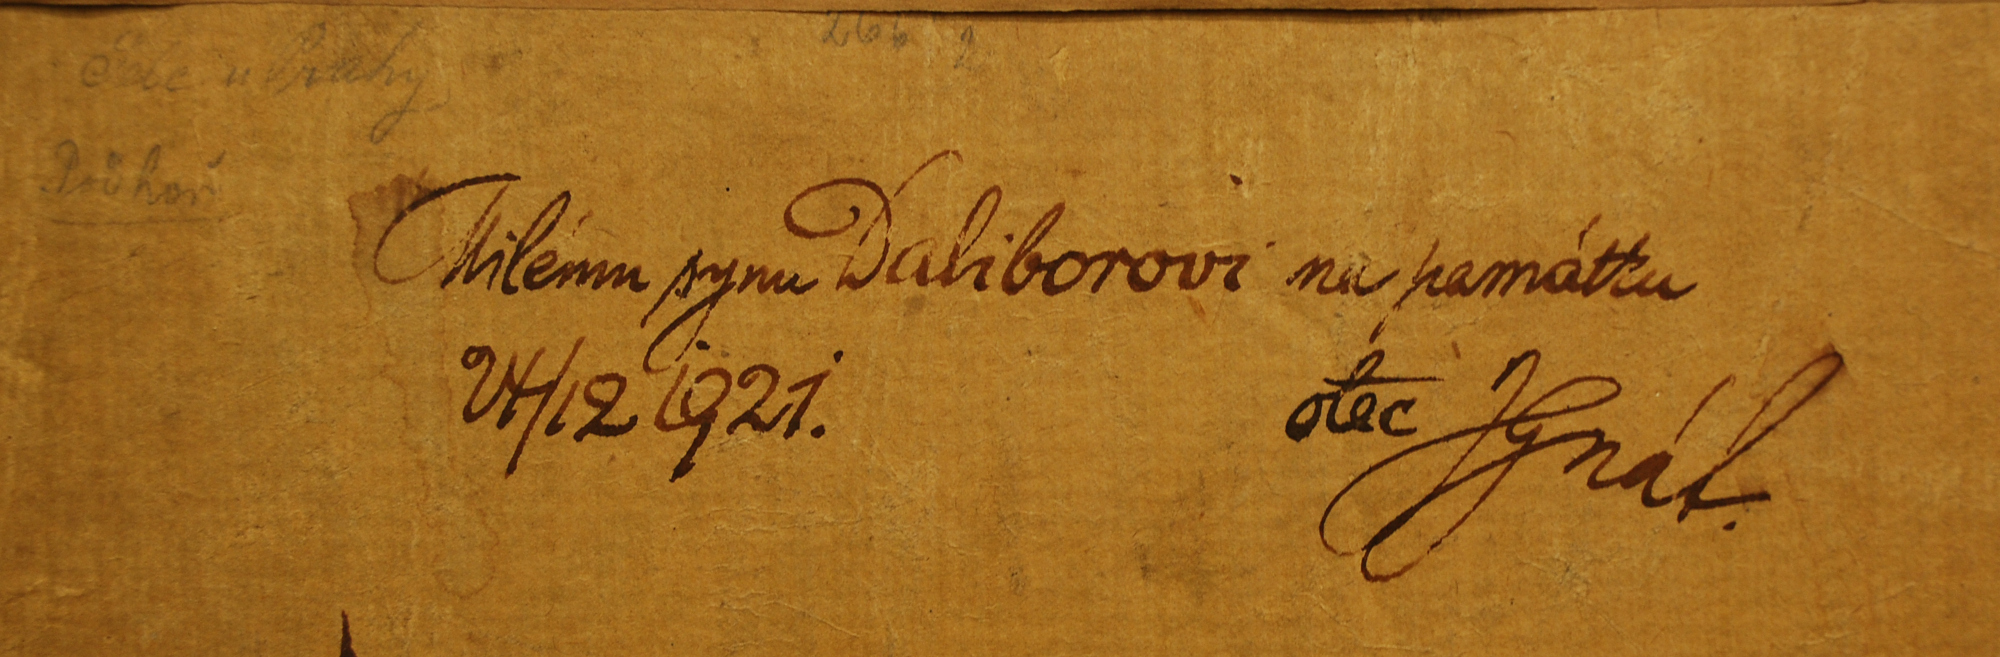 u Prahy
Podhoří
Milému synu Daliborovi na památku
24/12 1921.
otec Ignát.